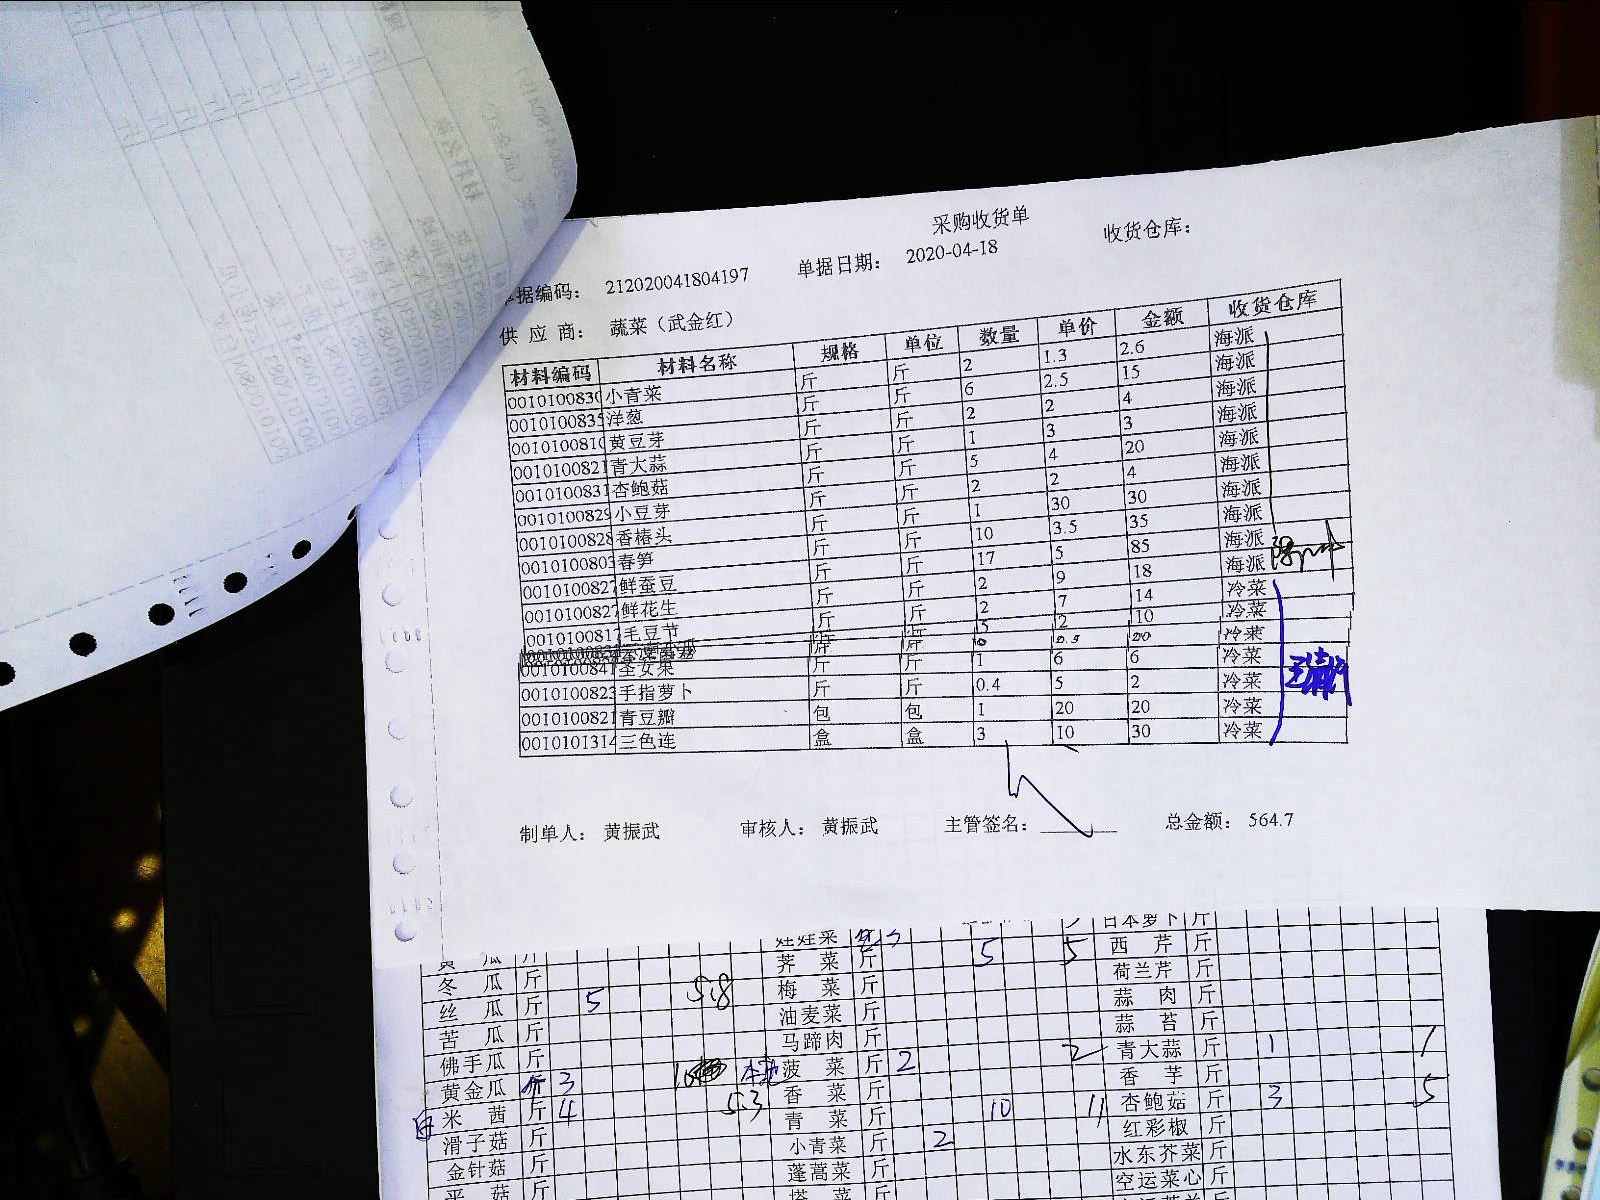 采购收货单
据编码： 212020041804197 单据日期： 2020-04-18 收货仓库：
供 应 商： 蔬菜（武金红）
材料编码 材料名称 规格 单位 数量 单价 金额 收货仓库
001010083 小青菜 斤 斤 2 1.3 2.6 海派
001010083 洋葱 斤 斤 6 2.5 15 海派
001010081 黄豆芽 斤 斤 2 2 4 海派
001010082 青大蒜 斤 斤 1 3 3 海派
001010083 杏鲍菇 斤 斤 5 4 20 海派
001010082 小豆芽 斤 斤 2 2 4 海派
001010082 香椿头 斤 斤 1 30 30 海派
001010080 春笋 斤 斤 10 3.5 35 海派
001010082 鲜蚕豆 斤 斤 17 5 85 海派
001010082 鲜花生 斤 斤 2 9 18 海派
001010081 毛豆节 斤 斤 2 7 14 冷菜
斤 斤 5 2 10 冷菜
冷菜
001010084 圣女果 斤 斤 1 6 6 冷菜
001010082 手指萝卜 斤 斤 0.4 5 2 冷菜
001010082 青豆瓣 包 包 1 20 20 冷菜
001010131 三色连 盒 盒 3 10 30 冷菜
制单人： 黄振武 审核人： 黄振武 主管签名： 总金额： 564.7
娃娃菜 日本萝卜 斤
瓜 斤 荠 菜 斤 5 5 西 芹 斤
冬 瓜 斤 梅 菜 斤 荷兰芹 斤
丝 瓜 斤 5 5.8 油麦菜 斤 蒜 肉 斤
苦 瓜 斤 马蹄肉 斤 蒜 苔 斤
佛手瓜 斤 菠 菜 斤 2 2 青大蒜 斤 1 1
黄金瓜 斤 3 本地 香 菜 斤 香 芋 斤
米 茜 斤 4 5.3 青 菜 斤 10 11 杏鲍菇 斤 3 5
滑子菇 斤 小青菜 斤 2 红彩椒 斤
金针菇 斤 蓬蒿菜 斤 水东芥菜 斤
平 菇 斤 斤 空运菜心 斤